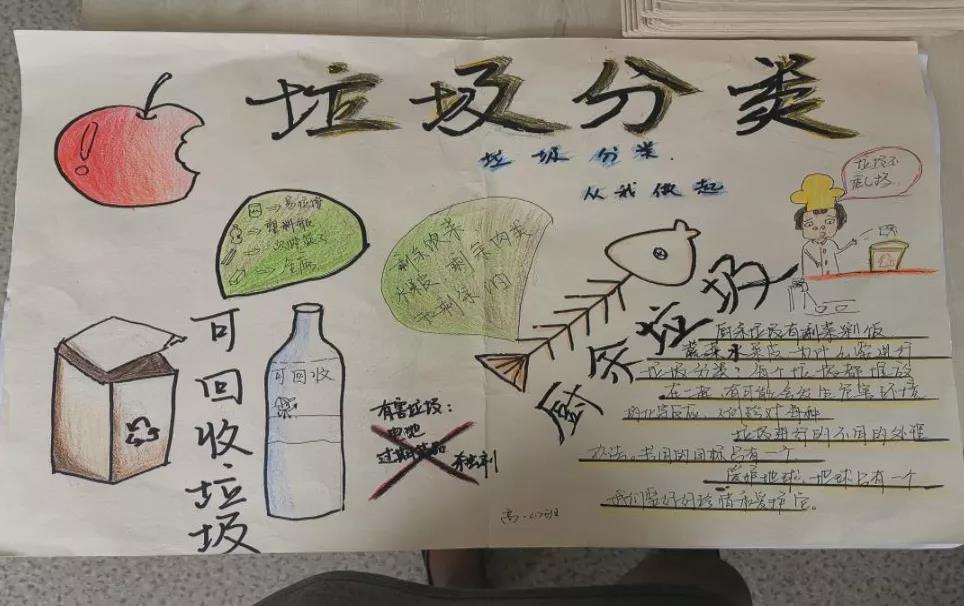 垃圾分类
垃圾分类.
从我做起
垃圾不
乱扔
易拉罐
塑料瓶
金属
剩余饭菜
水果皮 剩余肉类
和剩余肉
可回收垃圾
可回收
有害垃圾:
电池
过期药品
杀虫剂
厨余垃圾
厨余垃圾有剩菜剩饭
蔬菜水果皮 为什么要进行
垃圾分类?每个垃圾都堆放
在一起,有可能会发生危害环境
的化学反应,
垃圾进行的不同的处理
办法。共同的目标只有一个
爱护地球,地球只有一个
我们要好好珍惜和爱护它。
高一(2)班